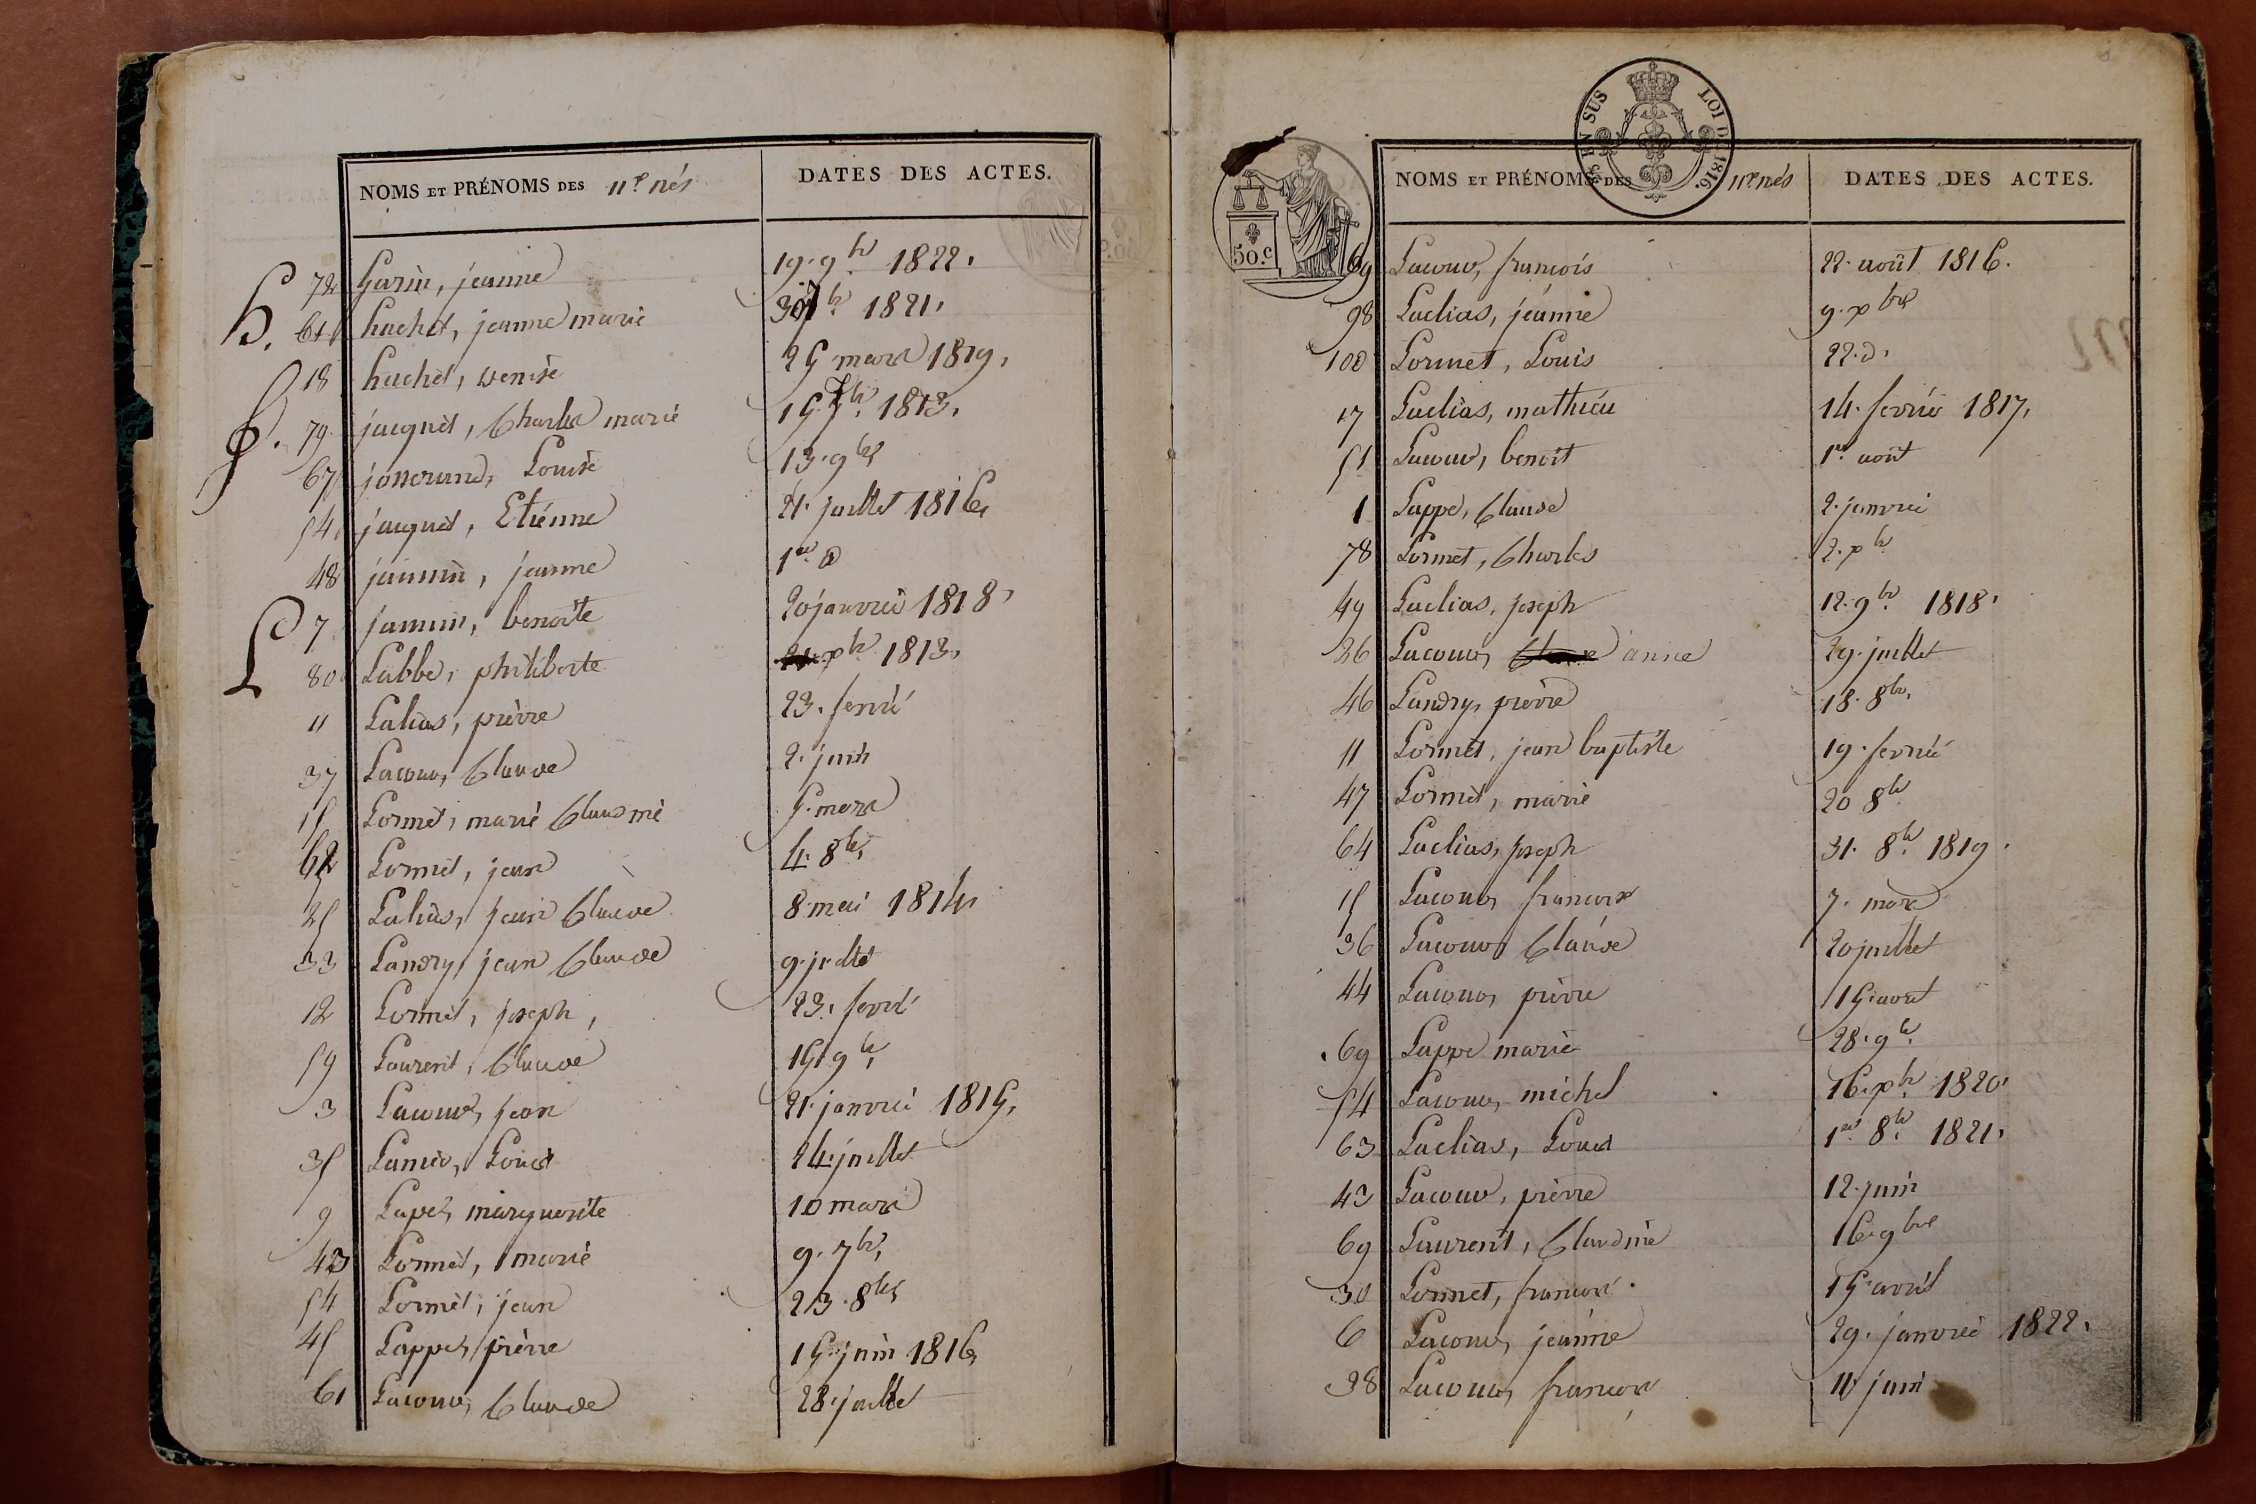 NOMS ET PRÉNOMS DES nés
DATES DES ACTES.
72 Garin, jeanne 19. 9br 1822.
h. 61 huchet, jeanne marie 1821.
18 huchet, denise 25 mars 1819.
j. 79 jacquet, Charles marie 15. 7br 1813.
67 Louise 13. 9bre
54 jacquet, Etiénne 21. juillet 1816.
48 jeanne 1er d
7 jamin, benoite 20 janvier 1818.
L 80 Labbe, philiberte xbr 1813.
11 Lalias, pièrre 23. fevrié
37 Lacour, Claude 2. juin
15 Lormet, marie Claudine 5. mars
62 Lormet, jean 4. 8bre
25 Lalias, jean Claude 8. mai 1814.
33 Landry, jean Claude 9. jullet
12 Lormet, joseph, 23. fevrié
59 Laurent, Claude 15. 9br
3 Lacour, jean 21. janvier 1815.
35 Louis 24. juillet
9 Lape, marguerite 10 mars
43 Lormet, marie 9. 7br
54 Lormet, jean 23. 8bre
45 Lappe, pièrre 15. juin 1816
61 Lacour, Claude 28. juillet
EN SUS LOI DE 1816.
50.c
NOMS ET PRÉNOMS DES nés
DATES DES ACTES.
69 Lacour, francois 22. août 1816.
98 Laclias, jeanne 9. xbre
100 Lormet, Louis 22. d.
17 Laclias, mathieu 14. fevrier 1817.
51 Lacour, benoit 1er août
1 Lappe, Claude 2. janvier
78 Lormet, Charles 2. xbr
49 Laclias, joseph 12. 9br 1818.
36 Lacour, anne 29. juillet
46 Landry, pièrre 18. 8br.
11 Lormet, jean baptiste 19. fevrié
47 Lormet, marie 20 8br
64 Laclias, joseph 31. 8br 1819.
15 Lacour, francois 7. mars
36 Lacour, Claude 20 juillet
44 Lacour, pièrre 15. aout
69 Lappe marie 28. 9br
54 Lacour, michel 16. xbr 1820.
63 Laclias, Louis 1er 8br 1821.
43 Lacour, pièrre 12. juin
69 Laurent, Claudine 16. 9bre
30 Lormet, francois 15. avril
6 Lacour, jeanne 29. janvier 1822.
38 Lacour, francois 11 juin